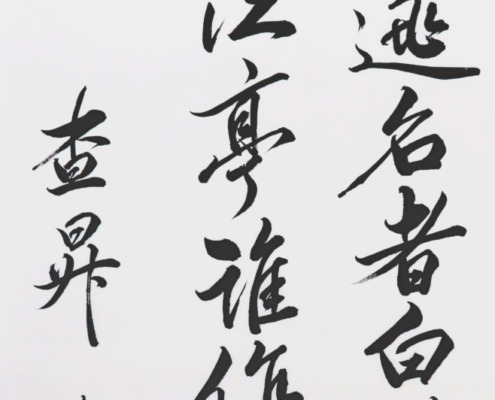 逃名者白
江亭誰作
查昇